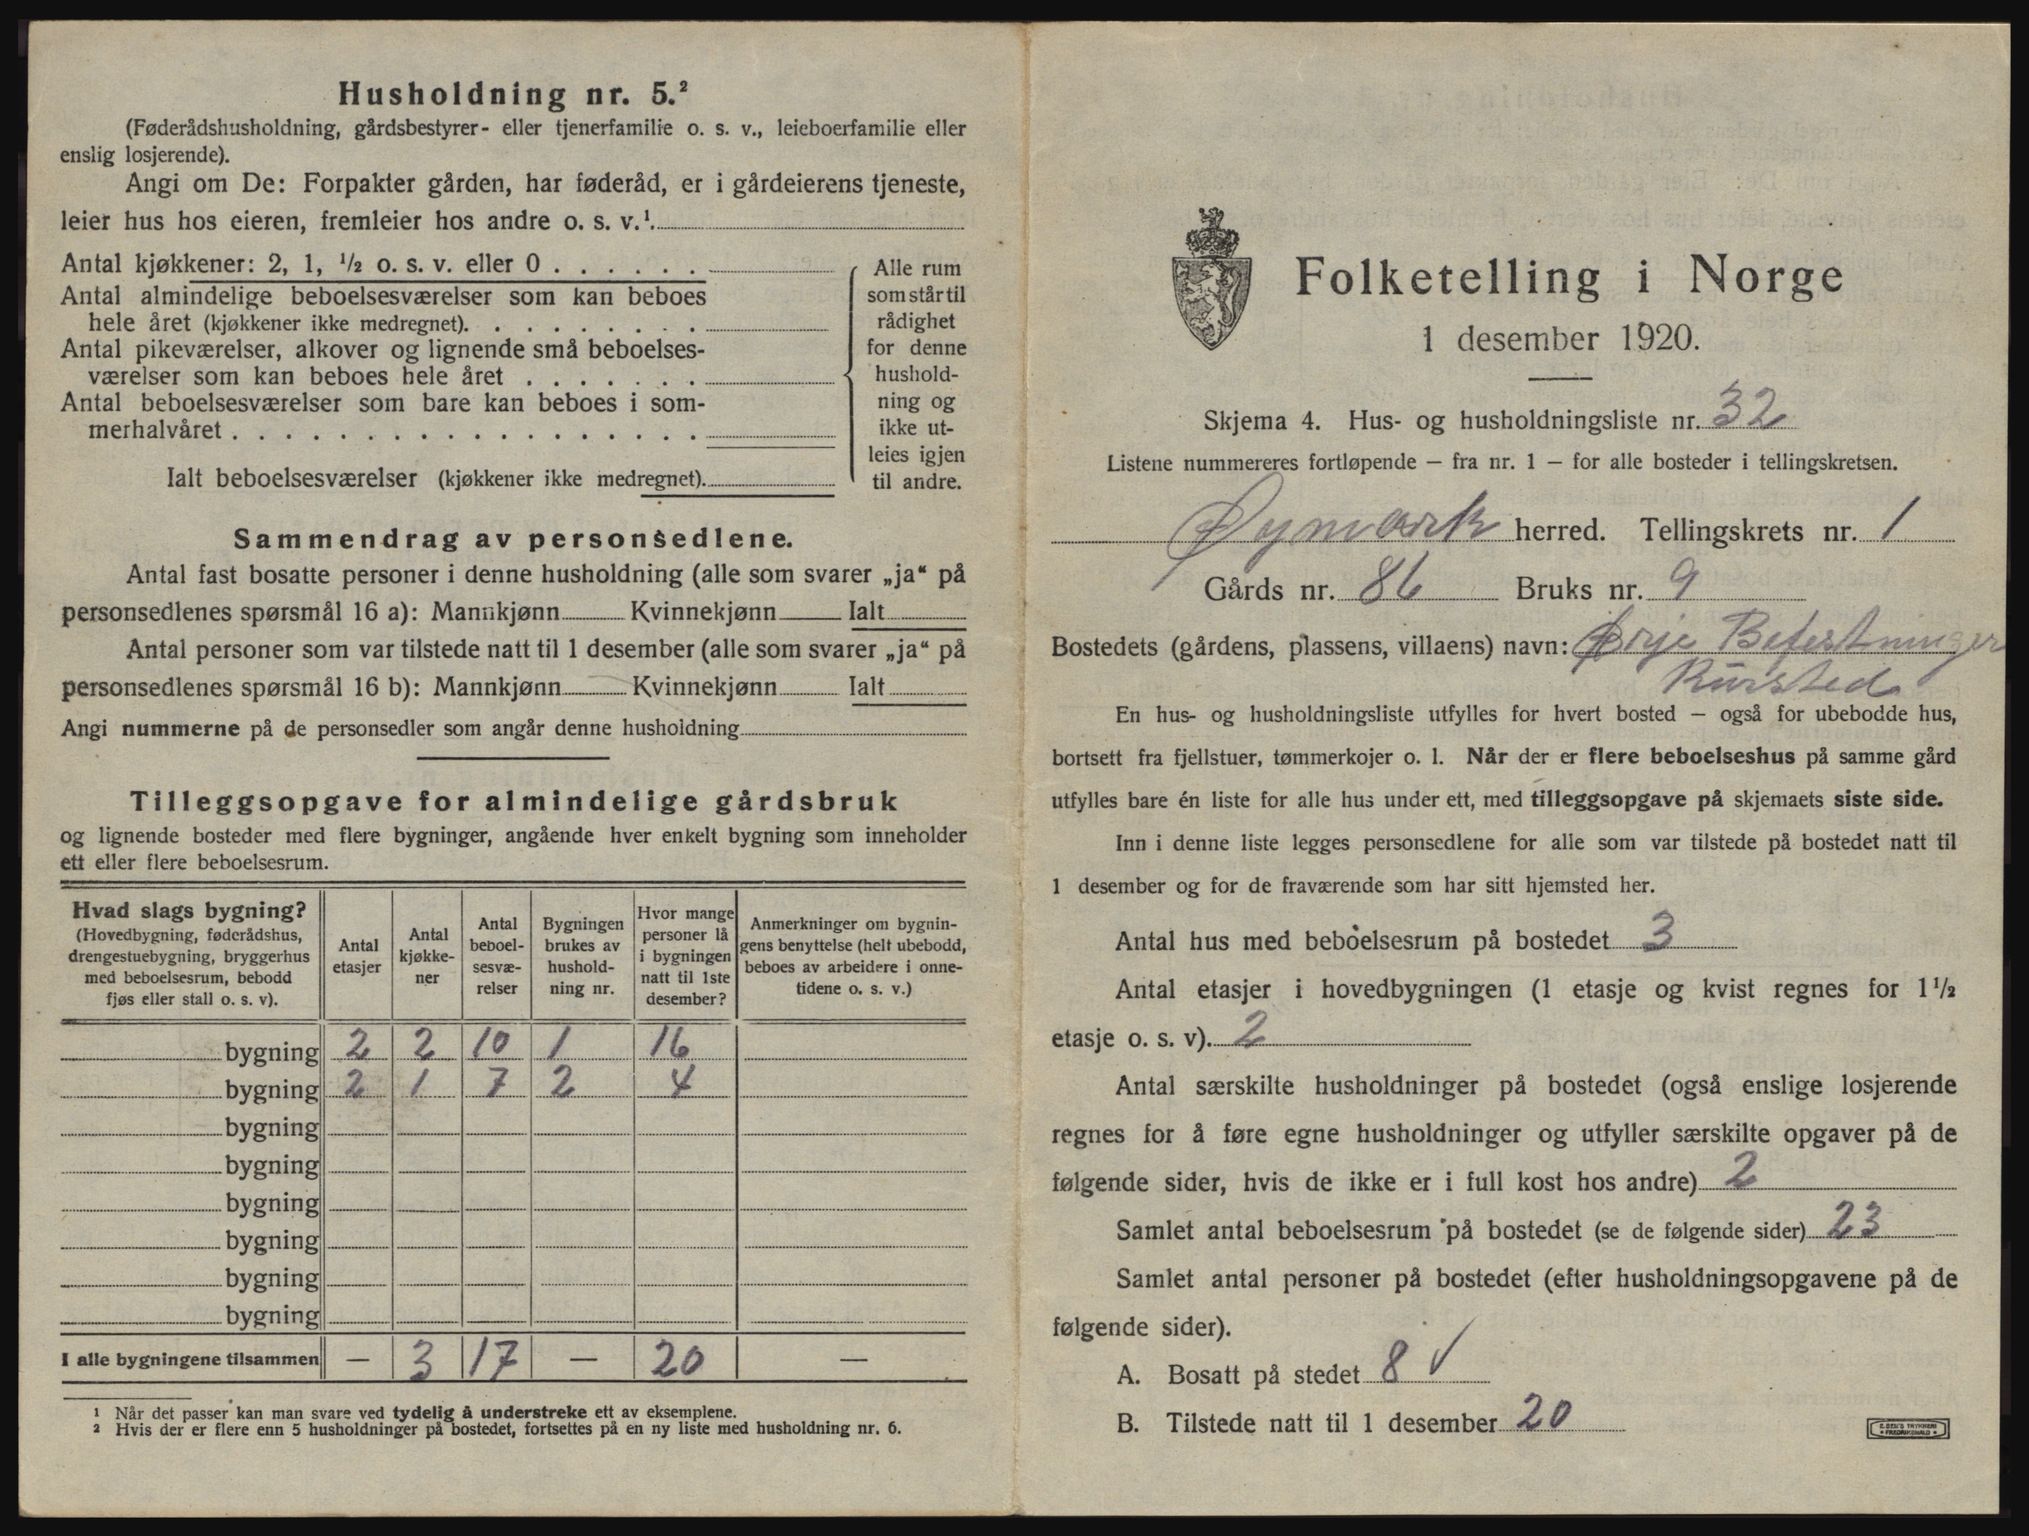 Husholdning nr. 5.²
(Føderådshusholdning, gårdsbestyrer- eller tjenerfamilie o. s. v., leieboerfamilie eller
enslig losjerende).
Angi om De: Forpakter gården, har føderåd, er i gårdeierens tjeneste,
leier hus hos eieren, fremleier hos andre o. s. v.¹.
Antal kjøkkener: 2, 1, ½ o. s. v. eller 0 . . . . . .
Antal almindelige beboelsesværelser som kan beboes
hele året (kjøkkener ikke medregnet). . . . . . . . .
Antal pikeværelser, alkover og lignende små beboelses-
værelser som kan beboes hele året . . . . . . .
Antal beboelsesværelser som bare kan beboes i som-
merhalvåret . . . . . . . . . . . . . . . . . .
Ialt beboelsesværelser (kjøkkener ikke medregnet).
Alle rum
som står til
rådighet
for denne
hushold-
ning og
ikke ut-
leies igjen
til andre.
Sammendrag av personsedlene.
Antal fast bosatte personer i denne husholdning (alle som svarer „ja“ på
personsedlenes spørsmål 16 a): Mannkjønn Kvinnekjønn Ialt
Antal personer som var tilstede natt til 1 desember (alle som svarer „ja“ på
personsedlenes spørsmål 16 b): Mannkjønn Kvinnekjønn Ialt
Angi nummerne på de personsedler som angår denne husholdning
Tilleggsopgave for almindelige gårdsbruk
og lignende bosteder med flere bygninger, angående hver enkelt bygning som inneholder
ett eller flere beboelsesrum.
Hvad slags bygning?
(Hovedbygning, føderådshus,
drengestuebygning, bryggerhus
med beboelsesrum, bebodd
fjøs eller stall o. s. v).
Antal
etasjer
Antal
kjøkke-
ner
Antal
beboel-
sesvæ-
relser
Bygningen
brukes av
hushold-
ning nr.
Hvor mange
personer lå
i bygningen
natt til 1ste
desember?
Anmerkninger om bygnin-
gens benyttelse (helt ubebodd,
beboes av arbeidere i onne-
tidene o. s. v.)
bygning 2 2 10 1 16
bygning 2 1 7 2 4
bygning
bygning
bygning
bygning
bygning
bygning
I alle bygningene tilsammen — 3 17 — 20 —
¹ Når det passer kan man svare ved tydelig å understreke ett av eksemplene.
² Hvis der er flere enn 5 husholdninger på bostedet, fortsettes på en ny liste med husholdning nr. 6.
Folketelling i Norge
1 desember 1920.
Skjema 4. Hus- og husholdningsliste nr. 32
Listene nummereres fortløpende – fra nr. 1 – for alle bosteder i tellingskretsen.
Øymark herred. Tellingskrets nr. 1
Gårds nr. 86 Bruks nr. 9
Bostedets (gårdens, plassens, villaens) navn: Ørje Befestninger
En hus- og husholdningsliste utfylles for hvert bosted – også for ubebodde hus,
bortsett fra fjellstuer, tømmerkojer o. l. Når der er flere beboelseshus på samme gård
utfylles bare én liste for alle hus under ett, med tilleggsopgave på skjemaets siste side.
Inn i denne liste legges personsedlene for alle som var tilstede på bostedet natt til
1 desember og for de fraværende som har sitt hjemsted her.
Antal hus med beboelsesrum på bostedet 3
Antal etasjer i hovedbygningen (1 etasje og kvist regnes for 1½
etasje o. s. v). 2
Antal særskilte husholdninger på bostedet (også enslige losjerende
regnes for å føre egne husholdninger og utfyller særskilte opgaver på de
følgende sider, hvis de ikke er i full kost hos andre) 2
Samlet antal beboelsesrum på bostedet (se de følgende sider) 23
Samlet antal personer på bostedet (efter husholdningsopgavene på de
følgende sider).
A. Bosatt på stedet 8 ✓
B. Tilstede natt til 1 desember 20